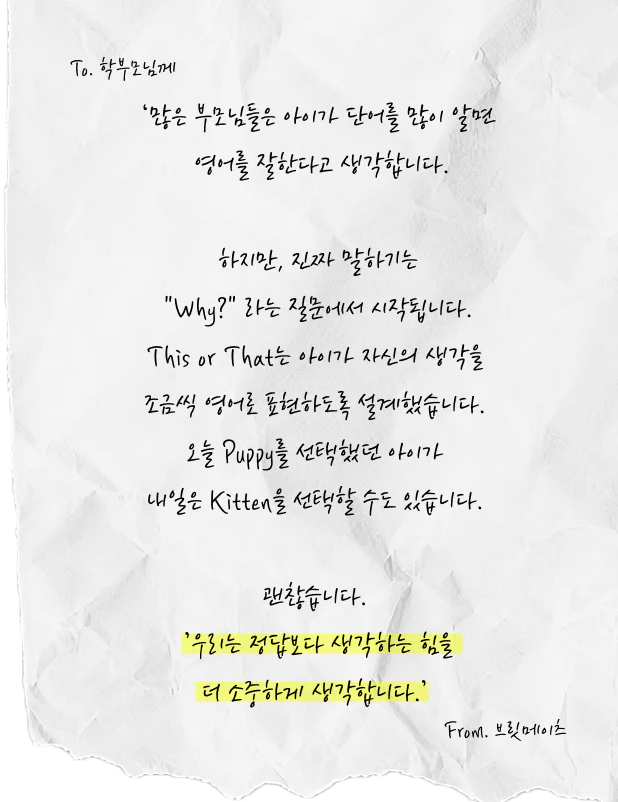 To. 학부모님께
'많은 부모님들은 아이가 단어를 많이 알면
영어를 잘한다고 생각합니다.
하지만, 진짜 말하기는
"Why?" 라는 질문에서 시작됩니다.
This or That는 아이가 자신의 생각을
조금씩 영어로 표현하도록 설계했습니다.
오늘 Puppy를 선택했던 아이가
내일은 Kitten을 선택할 수도 있습니다.
괜찮습니다.
'우리는 정답보다 생각하는 힘을
더 소중하게 생각합니다.'
From. 브릿메이츠